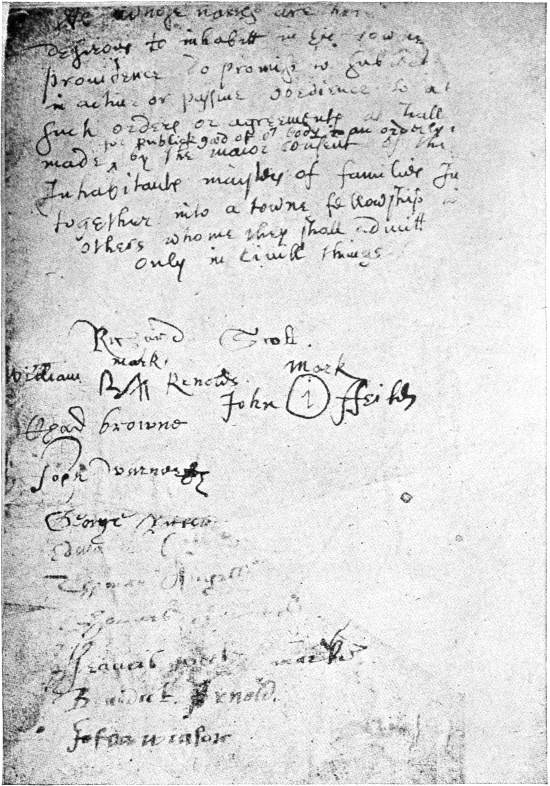 We whose names are her
Desirous to inhabitt in the towne
providence do promise to subject
in active or passive obedience to al
such orders or agreements as shall
for publick good of oʳ body in an orderly
made by the maior consent of the
Inhabitants maisters of families In
together into a towne fellowship
others whome they shall admitt
only in Civill things
Richard Scott.
mark. mark
William Renolds. John ffeild
Chad browne
John warner
George Rickard
Edward
Thomas Angell
Thomas
Francis weekes marke
Benedict Arnold.
Joshua winsor